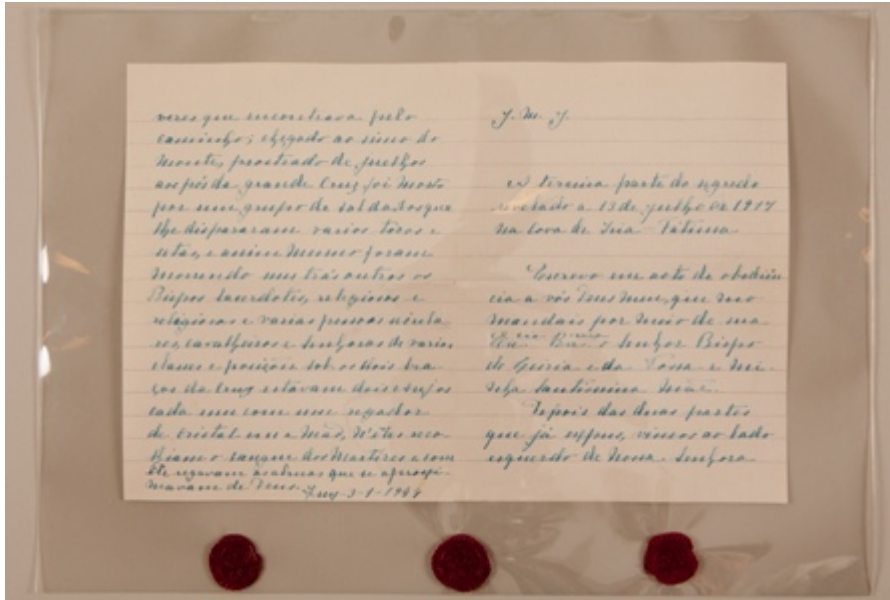 veres que encontrava pelo
caminho; chegado ao simo do
monte, prostrado de juelhos
aos pés da grande Cruz foi morto
por um grupo de soldados que
lhe dispararam varios tiros e
setas, e assim mesmo foram
morrendo uns trás outros os
Bispos Sacerdotes, religiosos e
religiosas e varias pessoas secula
res, cavalheiros e senhoras de varias
classes e posições. Sob os dois bra-
ços da Cruz estavam dois Anjos
cada um com um regador
de cristal em a mão, n'êles reco
lhiam o sangue dos Martires e com
êle regavam as almas que se aproxi-
mavam de Deus.
Tuy-3-1-1944
J. M. J.
A terceira parte do segredo
revelado a 13 de julho de 1917
na Cova de Iria - Fátima.
Escrevo em acto de obediên
cia a vós Deus meu, que mo
mandais por meio de sua
Ex.cia Rev.ma o Senhor Bispo
de Leiria e da Vossa e mi-
nha Santissima Mãe.
Depois das duas partes
que já expus, vimos ao lado
esquerdo de Nossa Senhora